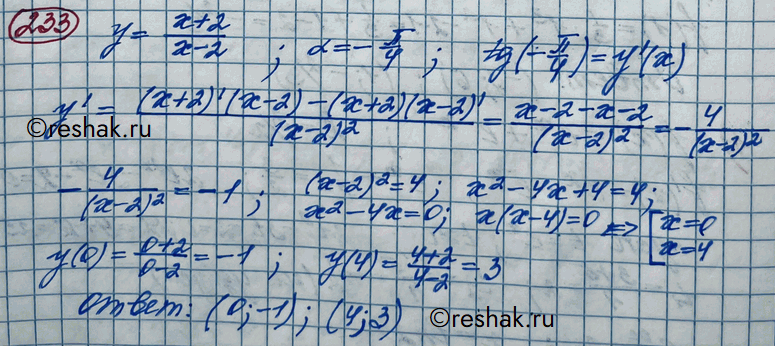 233 y = (x+2)/(x-2) ; α = -π/4 ; tg(-π/4) = y'(x)
y' = ((x+2)'(x-2) - (x+2)(x-2)')/(x-2)² = (x-2-x-2)/(x-2)² = -4/(x-2)²
©reshak.ru
-4/(x-2)² = -1 ; (x-2)² = 4 ; x² - 4x + 4 = 4 ;
x² - 4x = 0 ; x(x-4) = 0 <=> [ x = 0
x = 4
y(0) = (0+2)/(0-2) = -1 ; y(4) = (4+2)/(4-2) = 3
Ответ: (0; -1) ; (4; 3)
©reshak.ru